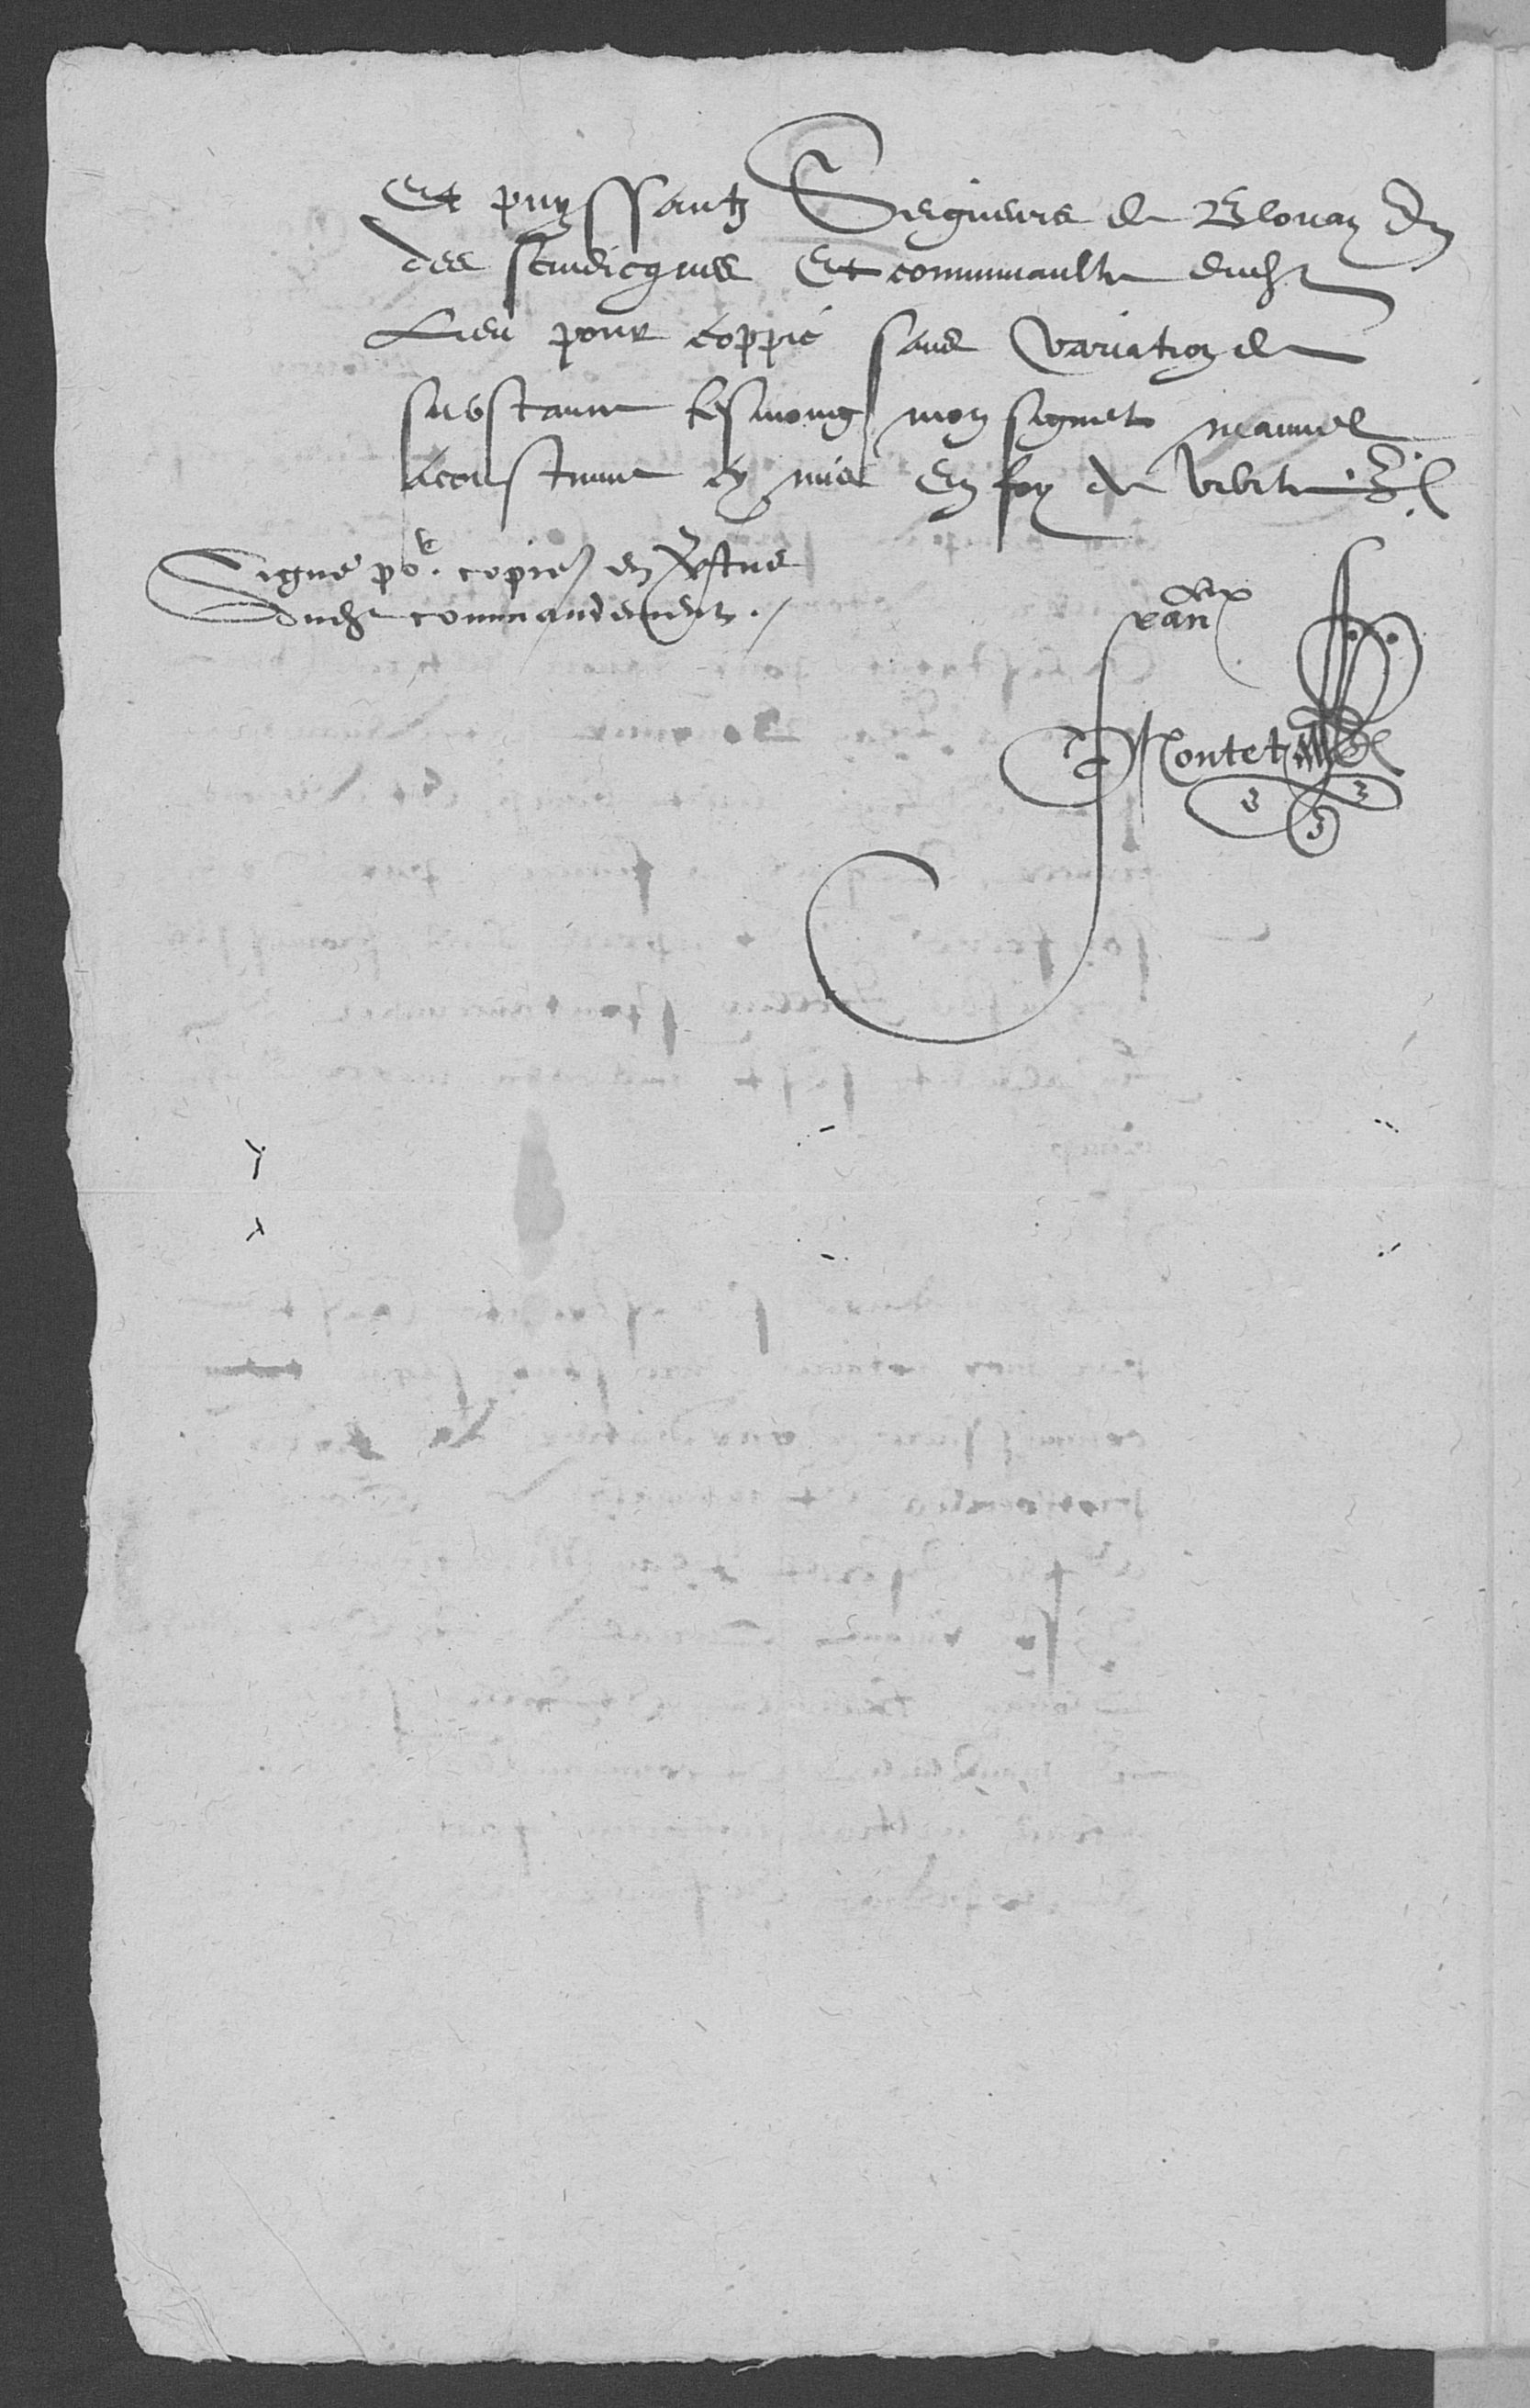 Et puyssantz Seigneurs de Blonay Et
des scindicques Et communaulte dudt
Lieu pour coppie sans variation de
substance tesmoing mon signet manuel
acoustume cy mis En foy de verite
Signe por. copie en vertue
dudt commandement ./
Montet